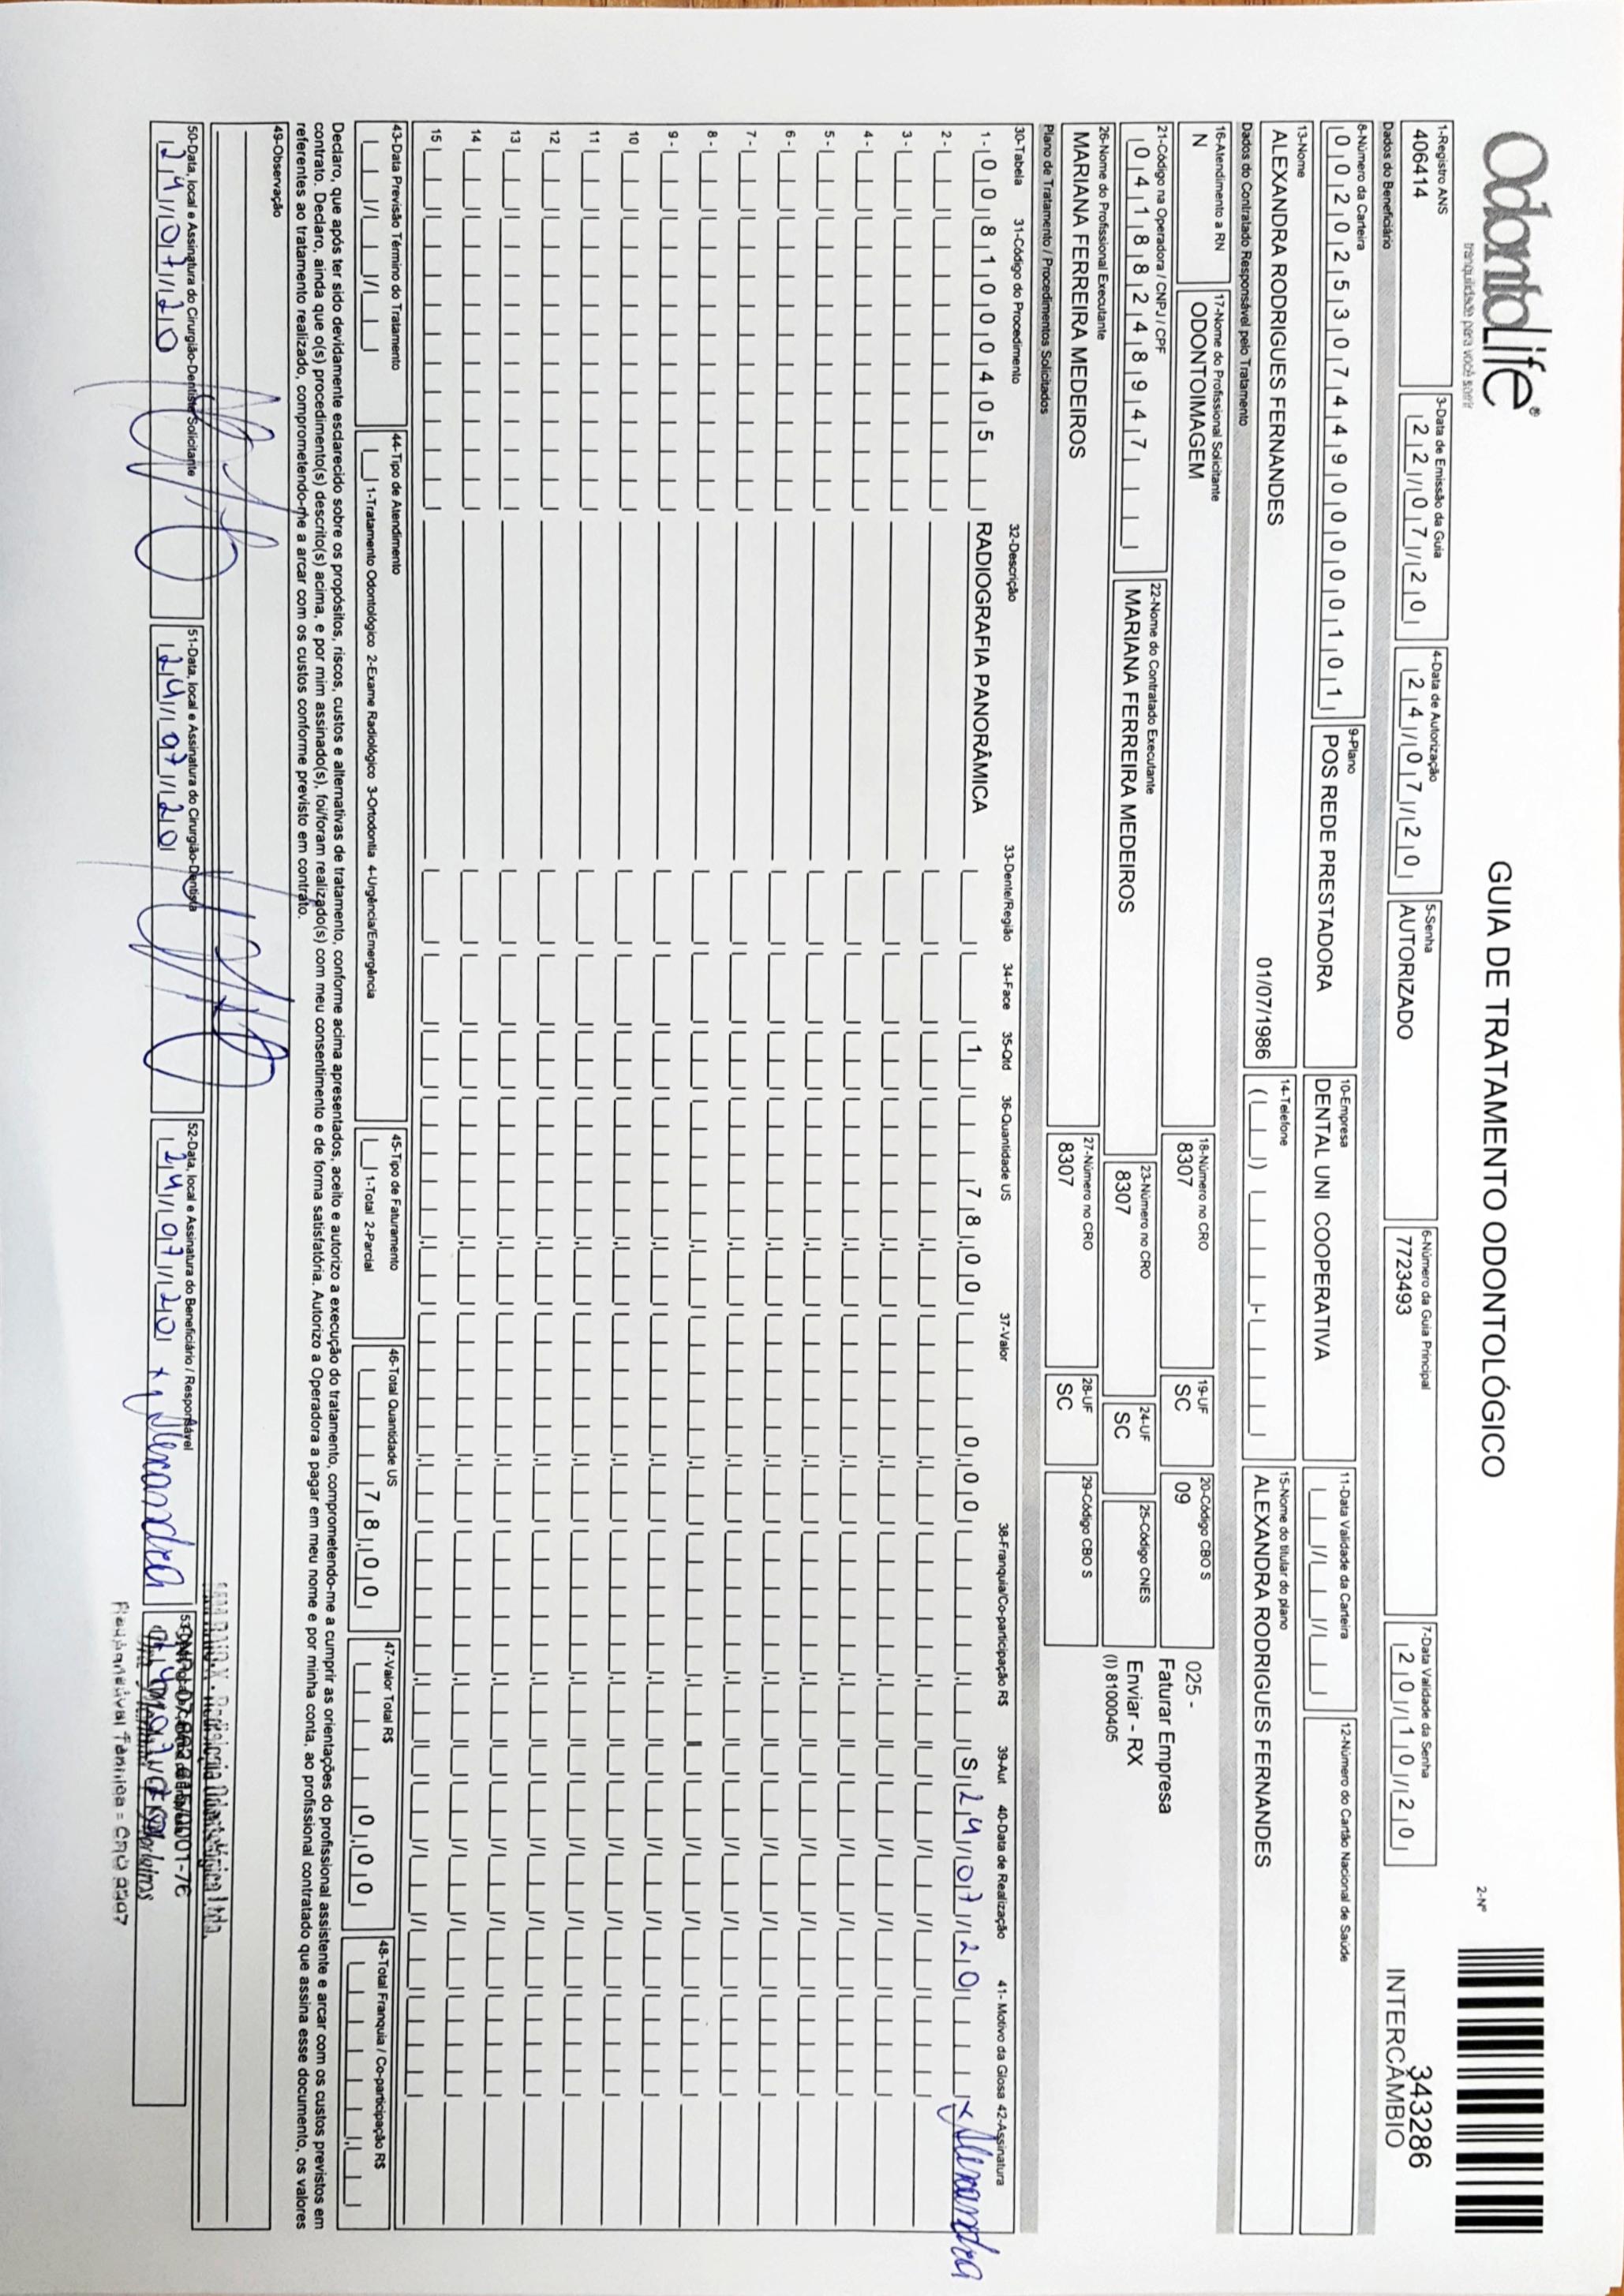 OdontoLife®
tranquilidade para você sorrir
GUIA DE TRATAMENTO ODONTOLÓGICO
2-Nº
343286
INTERCÂMBIO
1-Registro ANS
406414
3-Data de Emissão da Guia
22/07/20
4-Data de Autorização
24/07/20
5-Senha
AUTORIZADO
6-Número da Guia Principal
7723493
7-Data Validade da Senha
20/10/20
Dados do Beneficiário
8-Número da Carteira
00202530744900000101
9-Plano
POS REDE PRESTADORA
10-Empresa
DENTAL UNI COOPERATIVA
11-Data Validade da Carteira
12-Número do Cartão Nacional de Saúde
13-Nome
ALEXANDRA RODRIGUES FERNANDES
01/07/1986
14-Telefone
15-Nome do titular do plano
ALEXANDRA RODRIGUES FERNANDES
Dados do Contratado Responsável pelo Tratamento
16-Atendimento a RN
N
17-Nome do Profissional Solicitante
ODONTOIMAGEM
18-Número no CRO
8307
19-UF
SC
20-Código CBO S
09
025 -
Faturar Empresa
21-Código na Operadora / CNPJ / CPF
04188248947
22-Nome do Contratado Executante
MARIANA FERREIRA MEDEIROS
23-Número no CRO
8307
24-UF
SC
25-Código CNES
Enviar - RX
(I) 81000405
26-Nome do Profissional Executante
MARIANA FERREIRA MEDEIROS
27-Número no CRO
8307
28-UF
SC
29-Código CBO S
Plano de Tratamento / Procedimentos Solicitados
30-Tabela 31-Código do Procedimento 32-Descrição 33-Dente/Região 34-Face 35-Qtd 36-Quantidade US 37-Valor 38-Franquia/Co-participação R$ 39-Aut 40-Data de Realização 41- Motivo da Glosa 42-Assinatura
1- 00 81000405 RADIOGRAFIA PANORÂMICA 1 78,00 0,00 S 24/07/20 x Alexandra
2-
3-
4-
5-
6-
7-
8-
9-
10
11
12
13
14
15
43-Data Previsão Término do Tratamento
44-Tipo de Atendimento
1-Tratamento Odontológico 2-Exame Radiológico 3-Ortodontia 4-Urgência/Emergência
45-Tipo de Faturamento
1-Total 2-Parcial
46-Total Quantidade US
78,00
47-Valor Total R$
0,00
48-Total Franquia / Co-participação R$
Declaro, que após ter sido devidamente esclarecido sobre os propósitos, riscos, custos e alternativas de tratamento, conforme acima apresentados, aceito e autorizo a execução do tratamento, comprometendo-me a cumprir as orientações do profissional assistente e arcar com os custos previstos em
contrato. Declaro, ainda que o(s) procedimento(s) descrito(s) acima, e por mim assinado(s), foi/foram realizado(s) com meu consentimento e de forma satisfatória. Autorizo a Operadora a pagar em meu nome e por minha conta, ao profissional contratado que assina esse documento, os valores
referentes ao tratamento realizado, comprometendo-me a arcar com os custos conforme previsto em contrato.
49-Observação
50-Data, local e Assinatura do Cirurgião-Dentista Solicitante
24/07/20
51-Data, local e Assinatura do Cirurgião-Dentista
24/07/20
52-Data, local e Assinatura do Beneficiário / Responsável
24/07/20 x Alexandra
Radiologia Odontológica Ltda.
Responsável Técnica - CRO